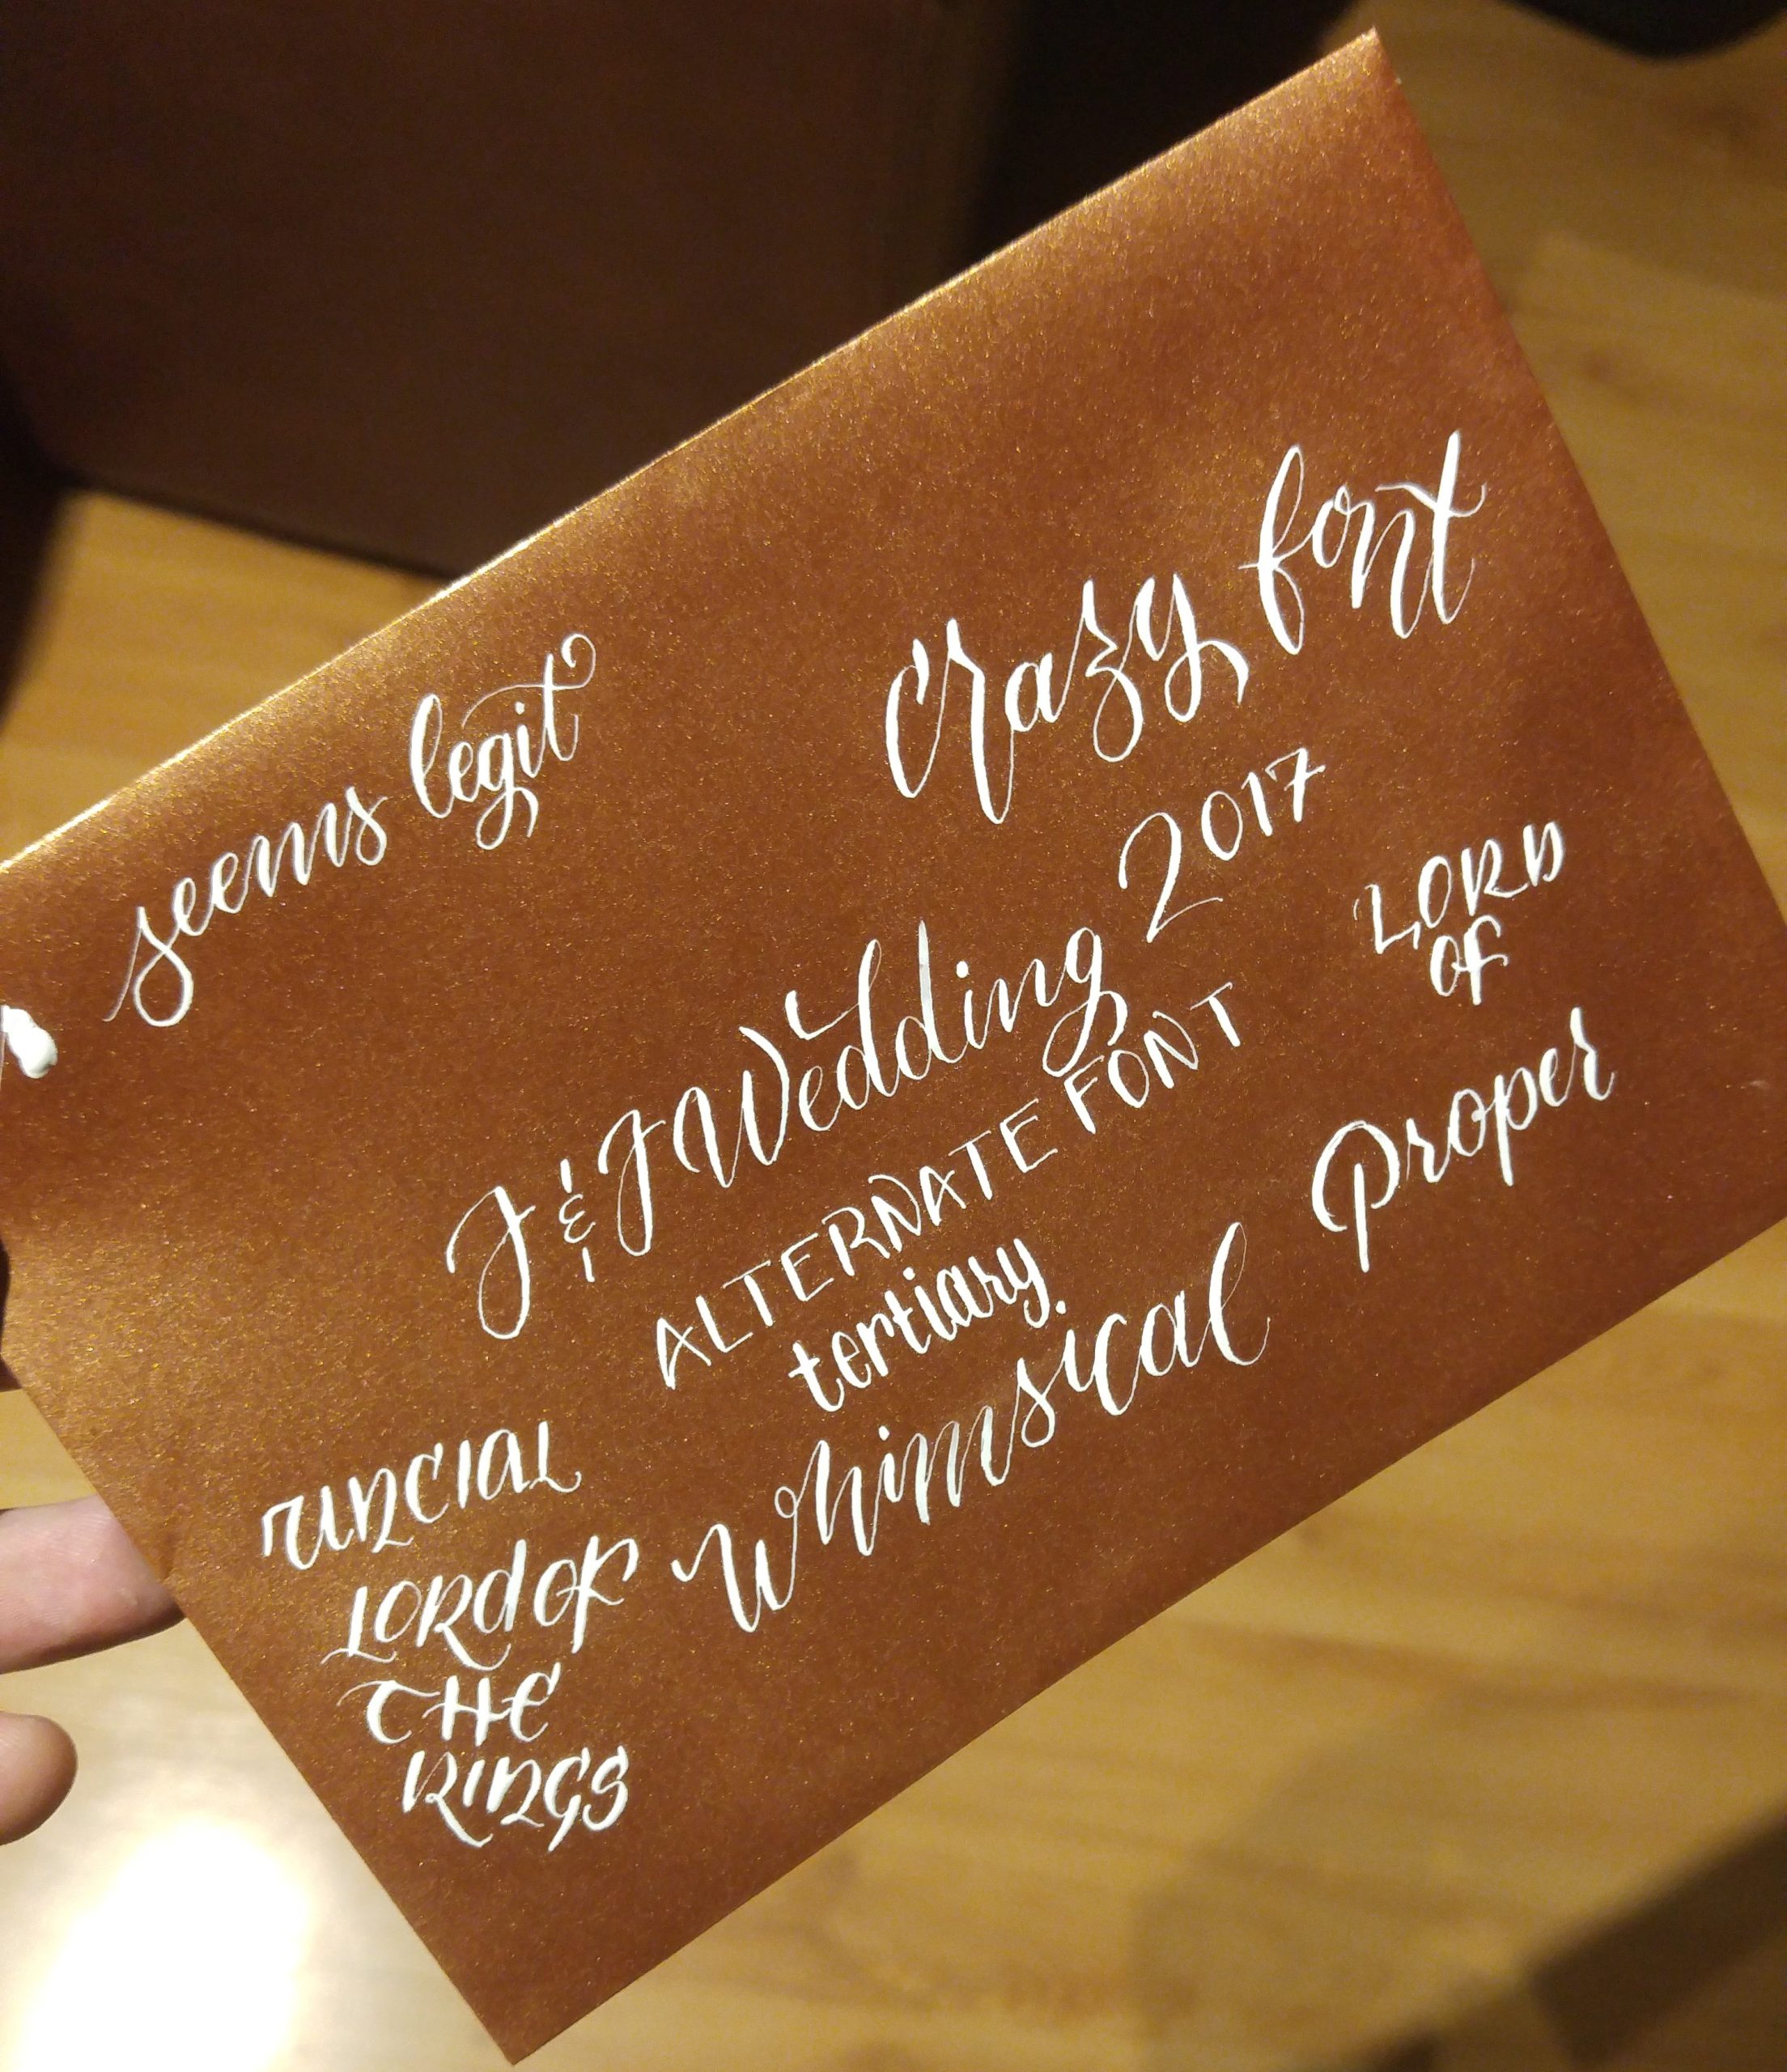 seems legit
crazy font
J & J Wedding 2017
ALTERNATE FONT
tertiary.
whimsical
LORD
OF
Proper
UNCIAL
LORD OF
THE
RINGS